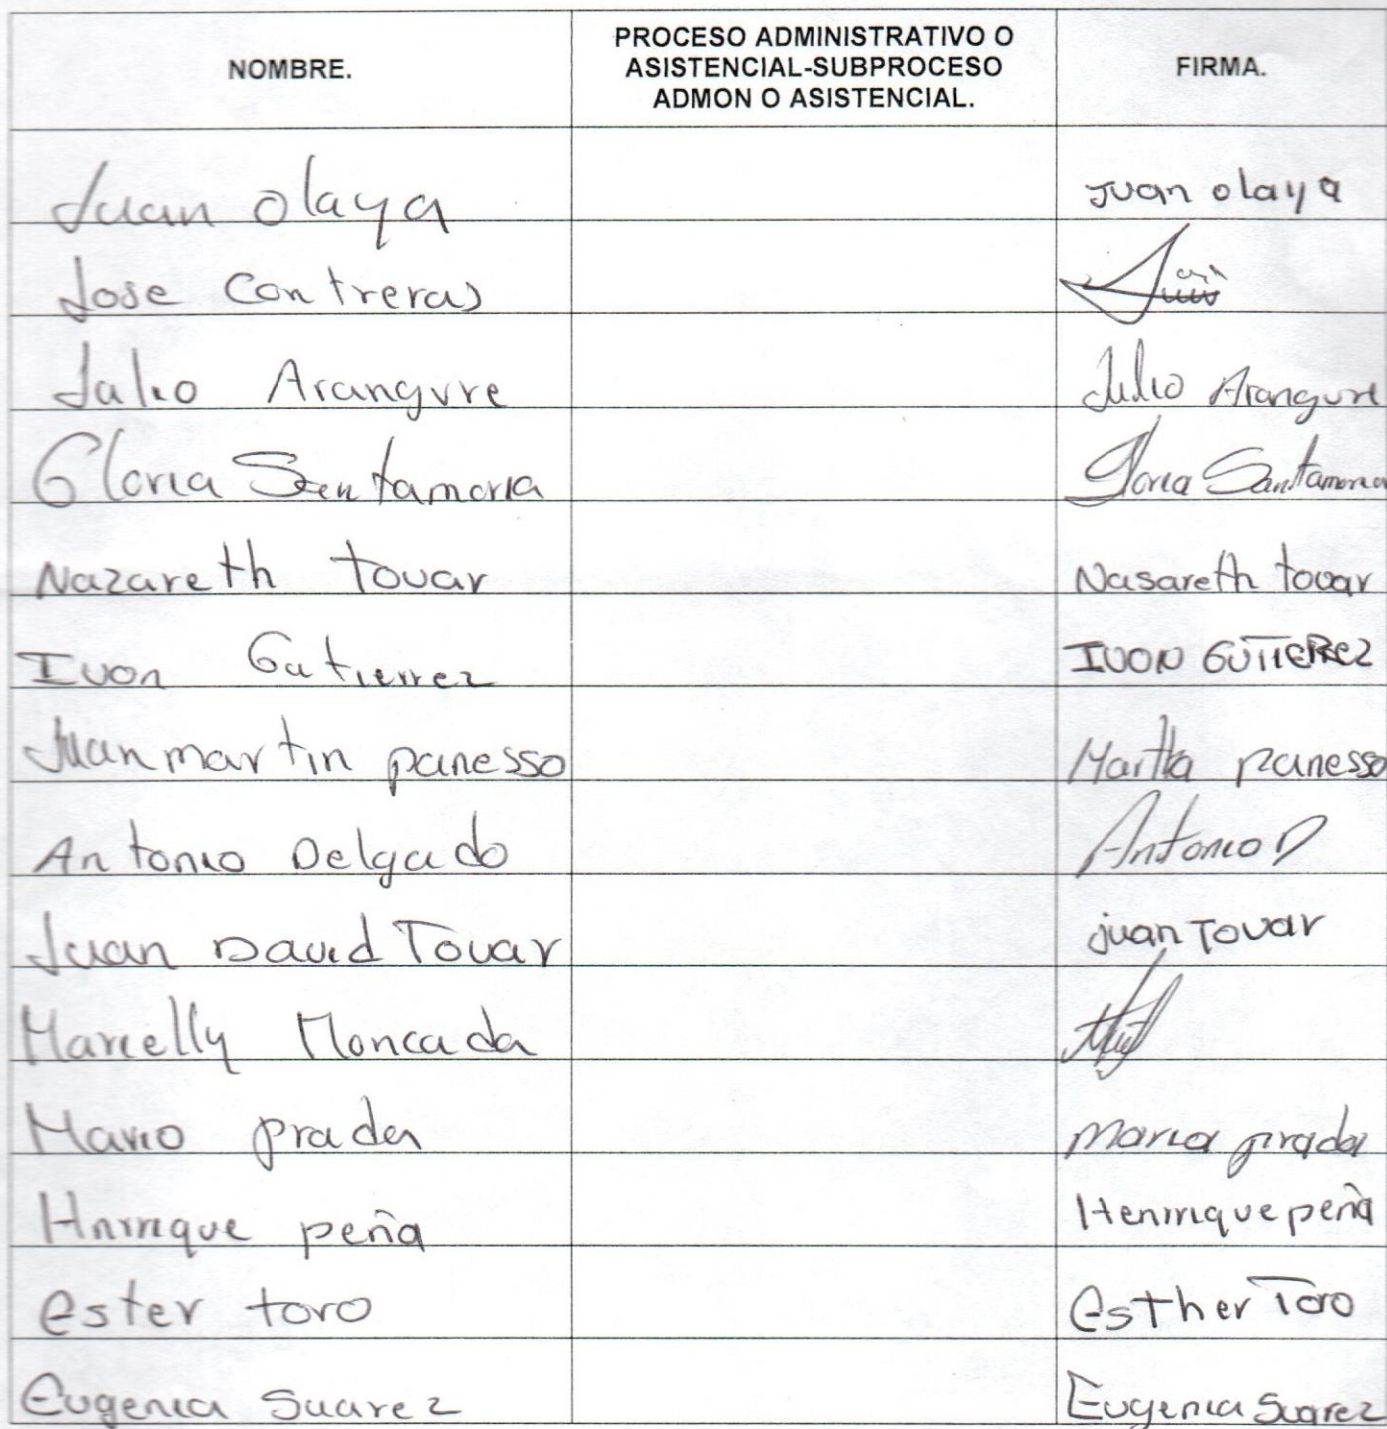 NOMBRE. PROCESO ADMINISTRATIVO O ASISTENCIAL-SUBPROCESO ADMON O ASISTENCIAL. FIRMA.
Juan olaya Juan olaya
Jose Contreras
Julio Arangure Julio Arangure
Gloria Santamaria Gloria Santamaria
Nazareth tovar Nasareth tovar
Ivon Gutierrez IVON GUTIERREZ
Juan martin panesso Martha panesso
Antonio Delgado Antonio D
Juan David Tovar juan Tovar
Marcelly Moncada
Mario prada Maria prada
Hnrrique peña Henrrique peña
Ester toro Esther Toro
Eugenia Suarez Eugenia Suarez